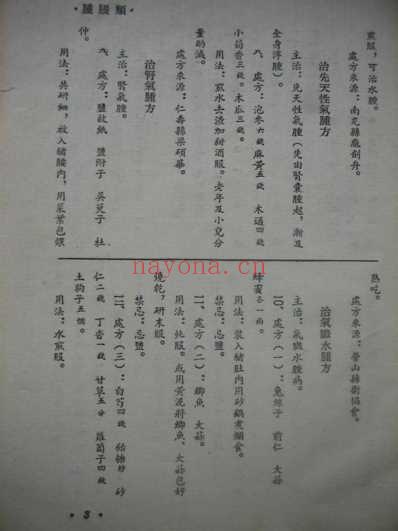 ·類腫臌·
煎服，可治水腫。
處方來源：南充縣龐劍舟。
治先天性氣腫方
主治：先天性氣腫（先由腎囊腫起，漸及
全身浮腫）。
八、處方：泡參六錢 麻黃五錢 木通四錢
小茴香三錢。木瓜三錢。
用法：煎水去渣加甜酒服。老年及小兒分
量酌減。
處方來源：仁壽縣梁碩華。
治腎氣腫方
主治：腎氣腫。
九、處方：鹽故紙 鹽附子 吳萸子 杜
仲。
用法：共研細，放入豬腰內，用菜葉包煨
熟吃。
處方來源：營山縣衛協會。
治氣臌水腫方
主治：氣臌水腫病。
一〇、處方（一）：兔絲子 前仁 大蒜
蜂蜜各一兩。
用法：裝入豬肚內用砂鍋煮爛食。
禁忌：忌鹽。
一一、處方（二）：鯽魚 大蒜。
用法：燉服。或用黃泥將鯽魚、大蒜包好
燒乾，研末服。
禁忌：忌鹽。
一二、處方（三）：白芍四錢 砂
仁二錢 丁香一錢 甘草五分 蘿蔔子四錢
土狗子五個。
用法：水煎服。
·3·
nayona.cn